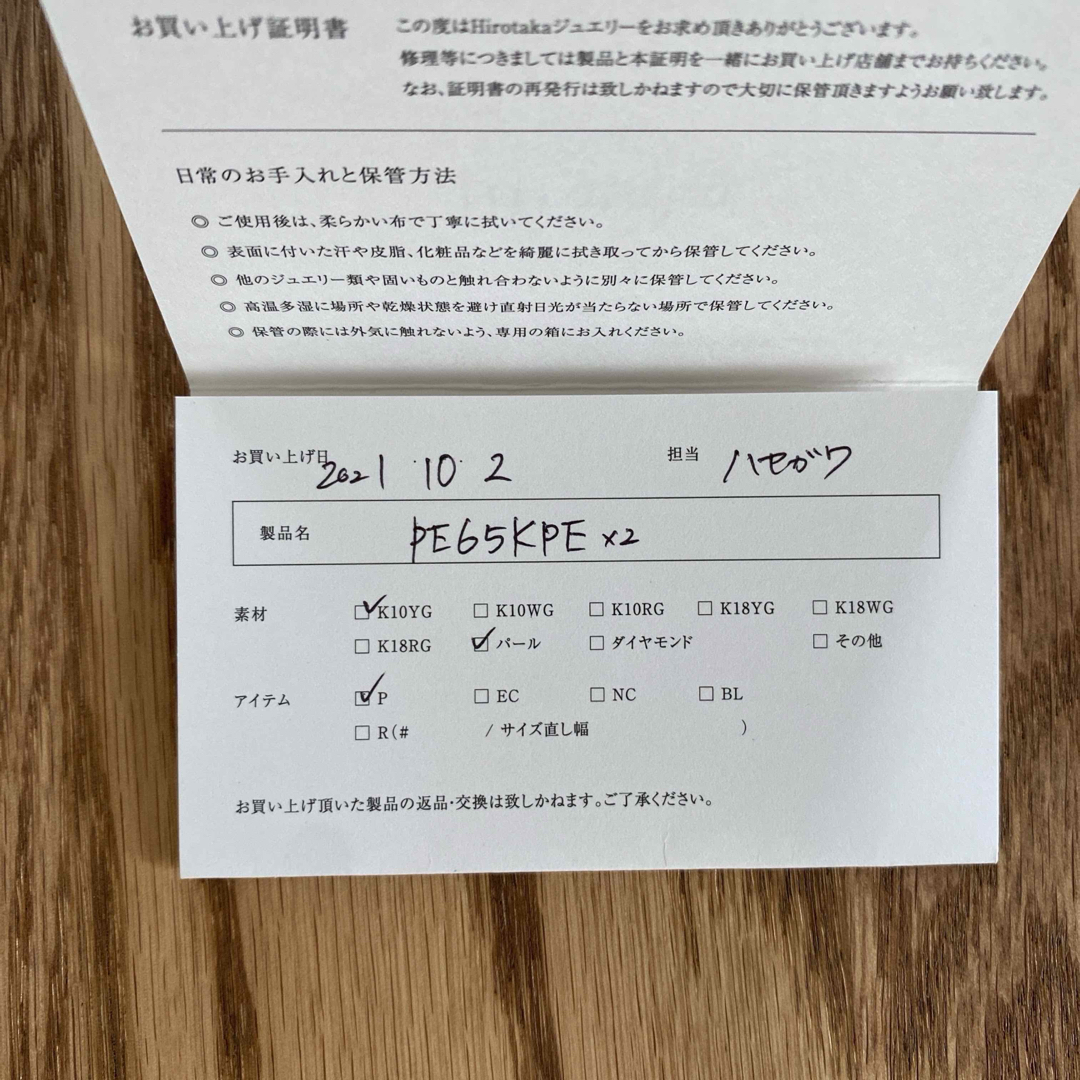 お買い上げ証明書
この度はHirotakaジュエリーをお求め頂きありがとうございます。
修理等につきましては製品と本証明を一緒にお買い上げ店舗までお持ちください。
なお、証明書の再発行は致しかねますので大切に保管頂きますようお願い致します。
日常のお手入れと保管方法
◎ ご使用後は、柔らかい布で丁寧に拭いてください。
◎ 表面に付いた汗や皮脂、化粧品などを綺麗に拭き取ってから保管してください。
◎ 他のジュエリー類や固いものと触れ合わないように別々に保管してください。
◎ 高温多湿に場所や乾燥状態を避け直射日光が当たらない場所で保管してください。
◎ 保管の際には外気に触れないよう、専用の箱にお入れください。
お買い上げ日 2021 10 2 担当 ハセガワ
製品名 PE65KPE x2
素材 ☑ K10YG □ K10WG □ K10RG □ K18YG □ K18WG
□ K18RG ☑ パール □ ダイヤモンド □ その他
アイテム ☑ P □ EC □ NC □ BL
□ R(# / サイズ直し幅 )
お買い上げ頂いた製品の返品・交換は致しかねます。ご了承ください。